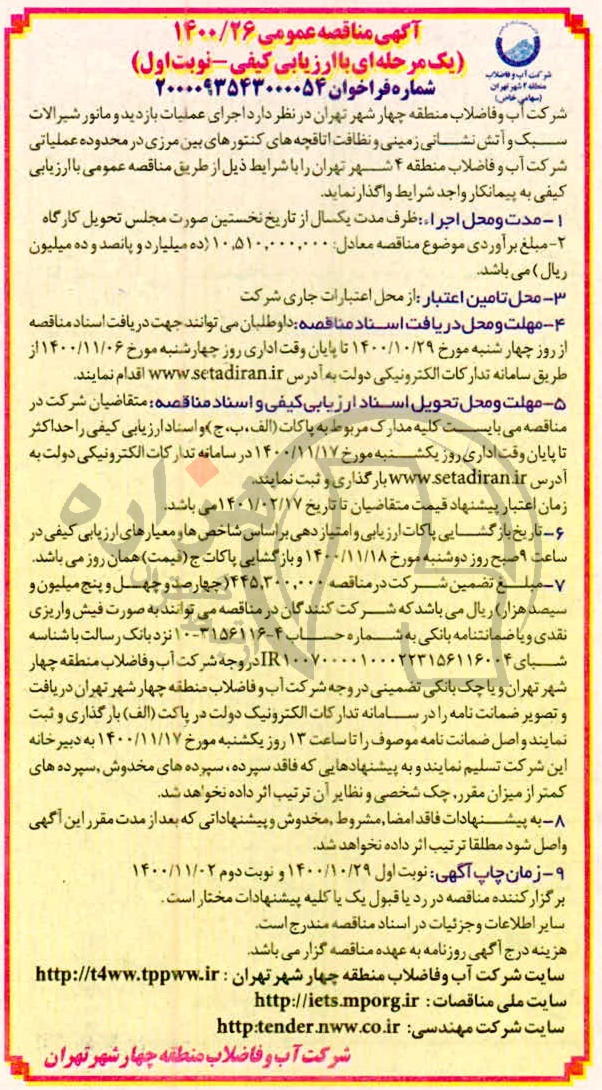 آگهی مناقصه عمومی ۱۴۰۰/۲۶
(یک مرحله ای با ارزیابی کیفی – نوبت اول)
شماره فراخوان ۲۰۰۰۰۹۳۵۴۳۰۰۰۰۵۴
شرکت آب و فاضلاب
منطقه ۴ شهر تهران
(سهامی خاص)
شرکت آب و فاضلاب منطقه چهار شهر تهران در نظر دارد اجرای عملیات بازدید و مانور شیرالات
سبک و آتش نشانی زمینی و نظافت اتاقچه های کنتورهای بین مرزی در محدوده عملیاتی
شرکت آب و فاضلاب منطقه ۴ شهر تهران را با شرایط ذیل از طریق مناقصه عمومی با ارزیابی
کیفی به پیمانکار واجد شرایط واگذار نماید.
۱- مدت و محل اجراء: ظرف مدت یکسال از تاریخ نخستین صورت مجلس تحویل کارگاه
۲- مبلغ برآوردی موضوع مناقصه معادل: ۱۰,۵۱۰,۰۰۰,۰۰۰ (ده میلیارد و پانصد و ده میلیون
ریال) می باشد.
۳- محل تامین اعتبار: از محل اعتبارات جاری شرکت
۴- مهلت و محل دریافت اسناد مناقصه: داوطلبان می توانند جهت دریافت اسناد مناقصه
از روز چهار شنبه مورخ ۱۴۰۰/۱۰/۲۹ تا پایان وقت اداری روز چهارشنبه مورخ ۱۴۰۰/۱۱/۰۶ از
طریق سامانه تدارکات الکترونیکی دولت به آدرس www.setadiran.ir اقدام نمایند.
۵- مهلت و محل تحویل اسناد ارزیابی کیفی و اسناد مناقصه: متقاضیان شرکت در
مناقصه می بایست کلیه مدارک مربوط به پاکات (الف، ب، ج) و اسناد ارزیابی کیفی را حداکثر
تا پایان وقت اداری روز یکشنبه مورخ ۱۴۰۰/۱۱/۱۷ در سامانه تدارکات الکترونیکی دولت به
آدرس www.setadiran.ir بارگذاری و ثبت نمایند.
زمان اعتبار پیشنهاد قیمت متقاضیان تا تاریخ ۱۴۰۱/۰۲/۱۷ می باشد.
۶- تاریخ بازگشایی پاکات ارزیابی و امتیازدهی بر اساس شاخص ها و معیارهای ارزیابی کیفی در
ساعت ۹ صبح روز دوشنبه مورخ ۱۴۰۰/۱۱/۱۸ و بازگشایی پاکات ج (قیمت) همان روز می باشد.
۷- مبلغ تضمین شرکت در مناقصه ۴۴۵,۳۰۰,۰۰۰ (چهارصد و چهل و پنج میلیون و
سیصد هزار) ریال می باشد که شرکت کنندگان در مناقصه می توانند به صورت فیش واریزی
نقدی و یا ضمانتنامه بانکی به شماره حساب ۴-۳۱۵۶۱۱۶-۱۰ نزد بانک رسالت با شناسه
شبای IR۱۰۰۷۰۰۰۰۱۰۰۰۲۲۳۱۵۶۱۱۶۰۰۴ در وجه شرکت آب و فاضلاب منطقه چهار
شهر تهران و یا چک بانکی تضمینی در وجه شرکت آب و فاضلاب منطقه چهار شهر تهران دریافت
و تصویر ضمانت نامه را در سامانه تدارکات الکترونیک دولت در پاکت (الف) بارگذاری و ثبت
نمایند و اصل ضمانت نامه موصوف را تا ساعت ۱۳ روز یکشنبه مورخ ۱۴۰۰/۱۱/۱۷ به دبیرخانه
این شرکت تسلیم نمایند و به پیشنهادهایی که فاقد سپرده، سپرده های مخدوش، سپرده های
کمتر از میزان مقرر، چک شخصی و نظایر آن ترتیب اثر داده نخواهد شد.
۸- به پیشنهادات فاقد امضا, مشروط, مخدوش و پیشنهاداتی که بعد از مدت مقرر این آگهی
واصل شود مطلقا ترتیب اثر داده نخواهد شد.
۹- زمان چاپ آگهی: نوبت اول ۱۴۰۰/۱۰/۲۹ و نوبت دوم ۱۴۰۰/۱۱/۰۲
برگزار کننده مناقصه در رد یا قبول یک یا کلیه پیشنهادات مختار است.
سایر اطلاعات و جزئیات در اسناد مناقصه مندرج است.
هزینه درج آگهی روزنامه به عهده مناقصه گزار می باشد.
سایت شرکت آب و فاضلاب منطقه چهار شهر تهران : http://t4ww.tppww.ir
سایت ملی مناقصات: http://iets.mporg.ir
سایت شرکت مهندسی: http:tender.nww.co.ir
شرکت آب و فاضلاب منطقه چهار شهر تهران